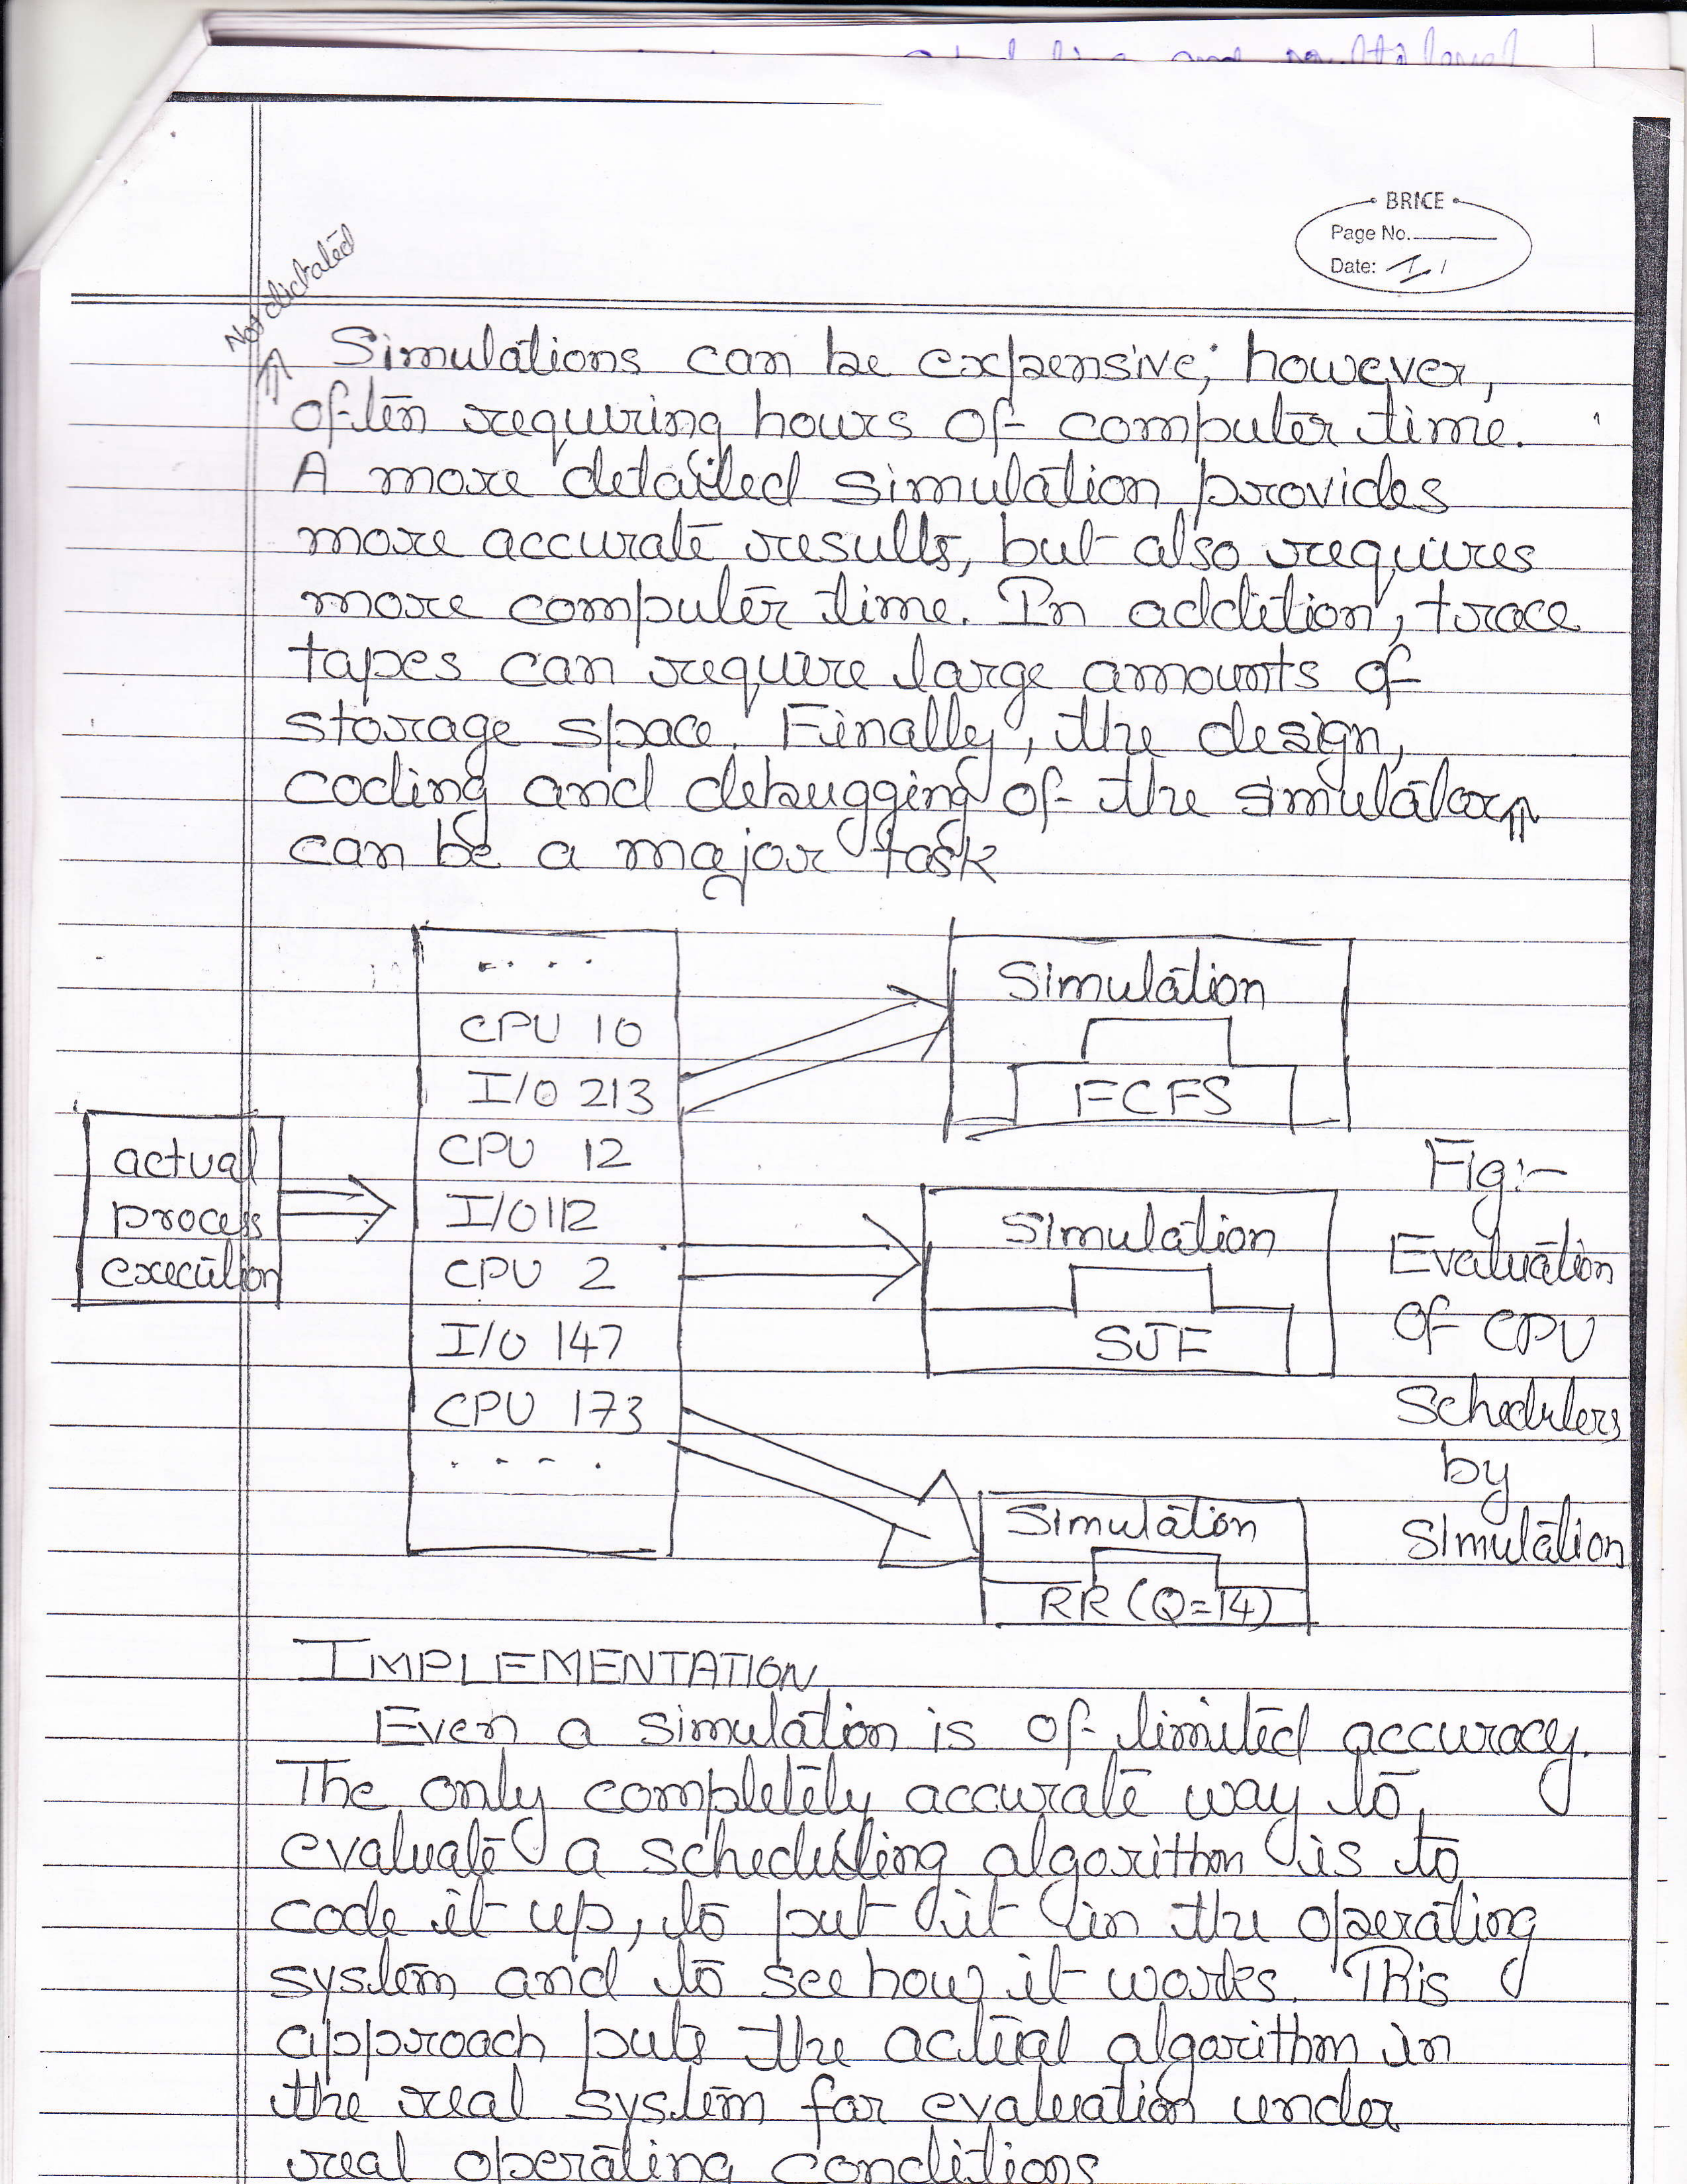 BRICE
Page No.
Date: / /
Not dictated
Simulations can be expensive; however,
often requiring hours of computer time.
A more detailed simulation provides
more accurate results, but also requires
more computer time. In addition, trace
tapes can require large amounts of
storage space. Finally, the design,
coding and debugging of the simulator
can be a major task
. . . .
CPU 10
I/O 213
CPU 12
I/O 112
CPU 2
I/O 147
CPU 173
. . . .
actual
process
execution
Simulation
FCFS
Simulation
SJF
Simulation
RR (Q=14)
Fig:-
Evaluation
of CPU
Schedulers
by
Simulation
IMPLEMENTATION
Even a simulation is of limited accuracy.
The only completely accurate way to
evaluate a scheduling algorithm is to
code it up, to put it in the operating
system and to see how it works. This
approach puts the actual algorithm in
the real system for evaluation under
real operating conditions